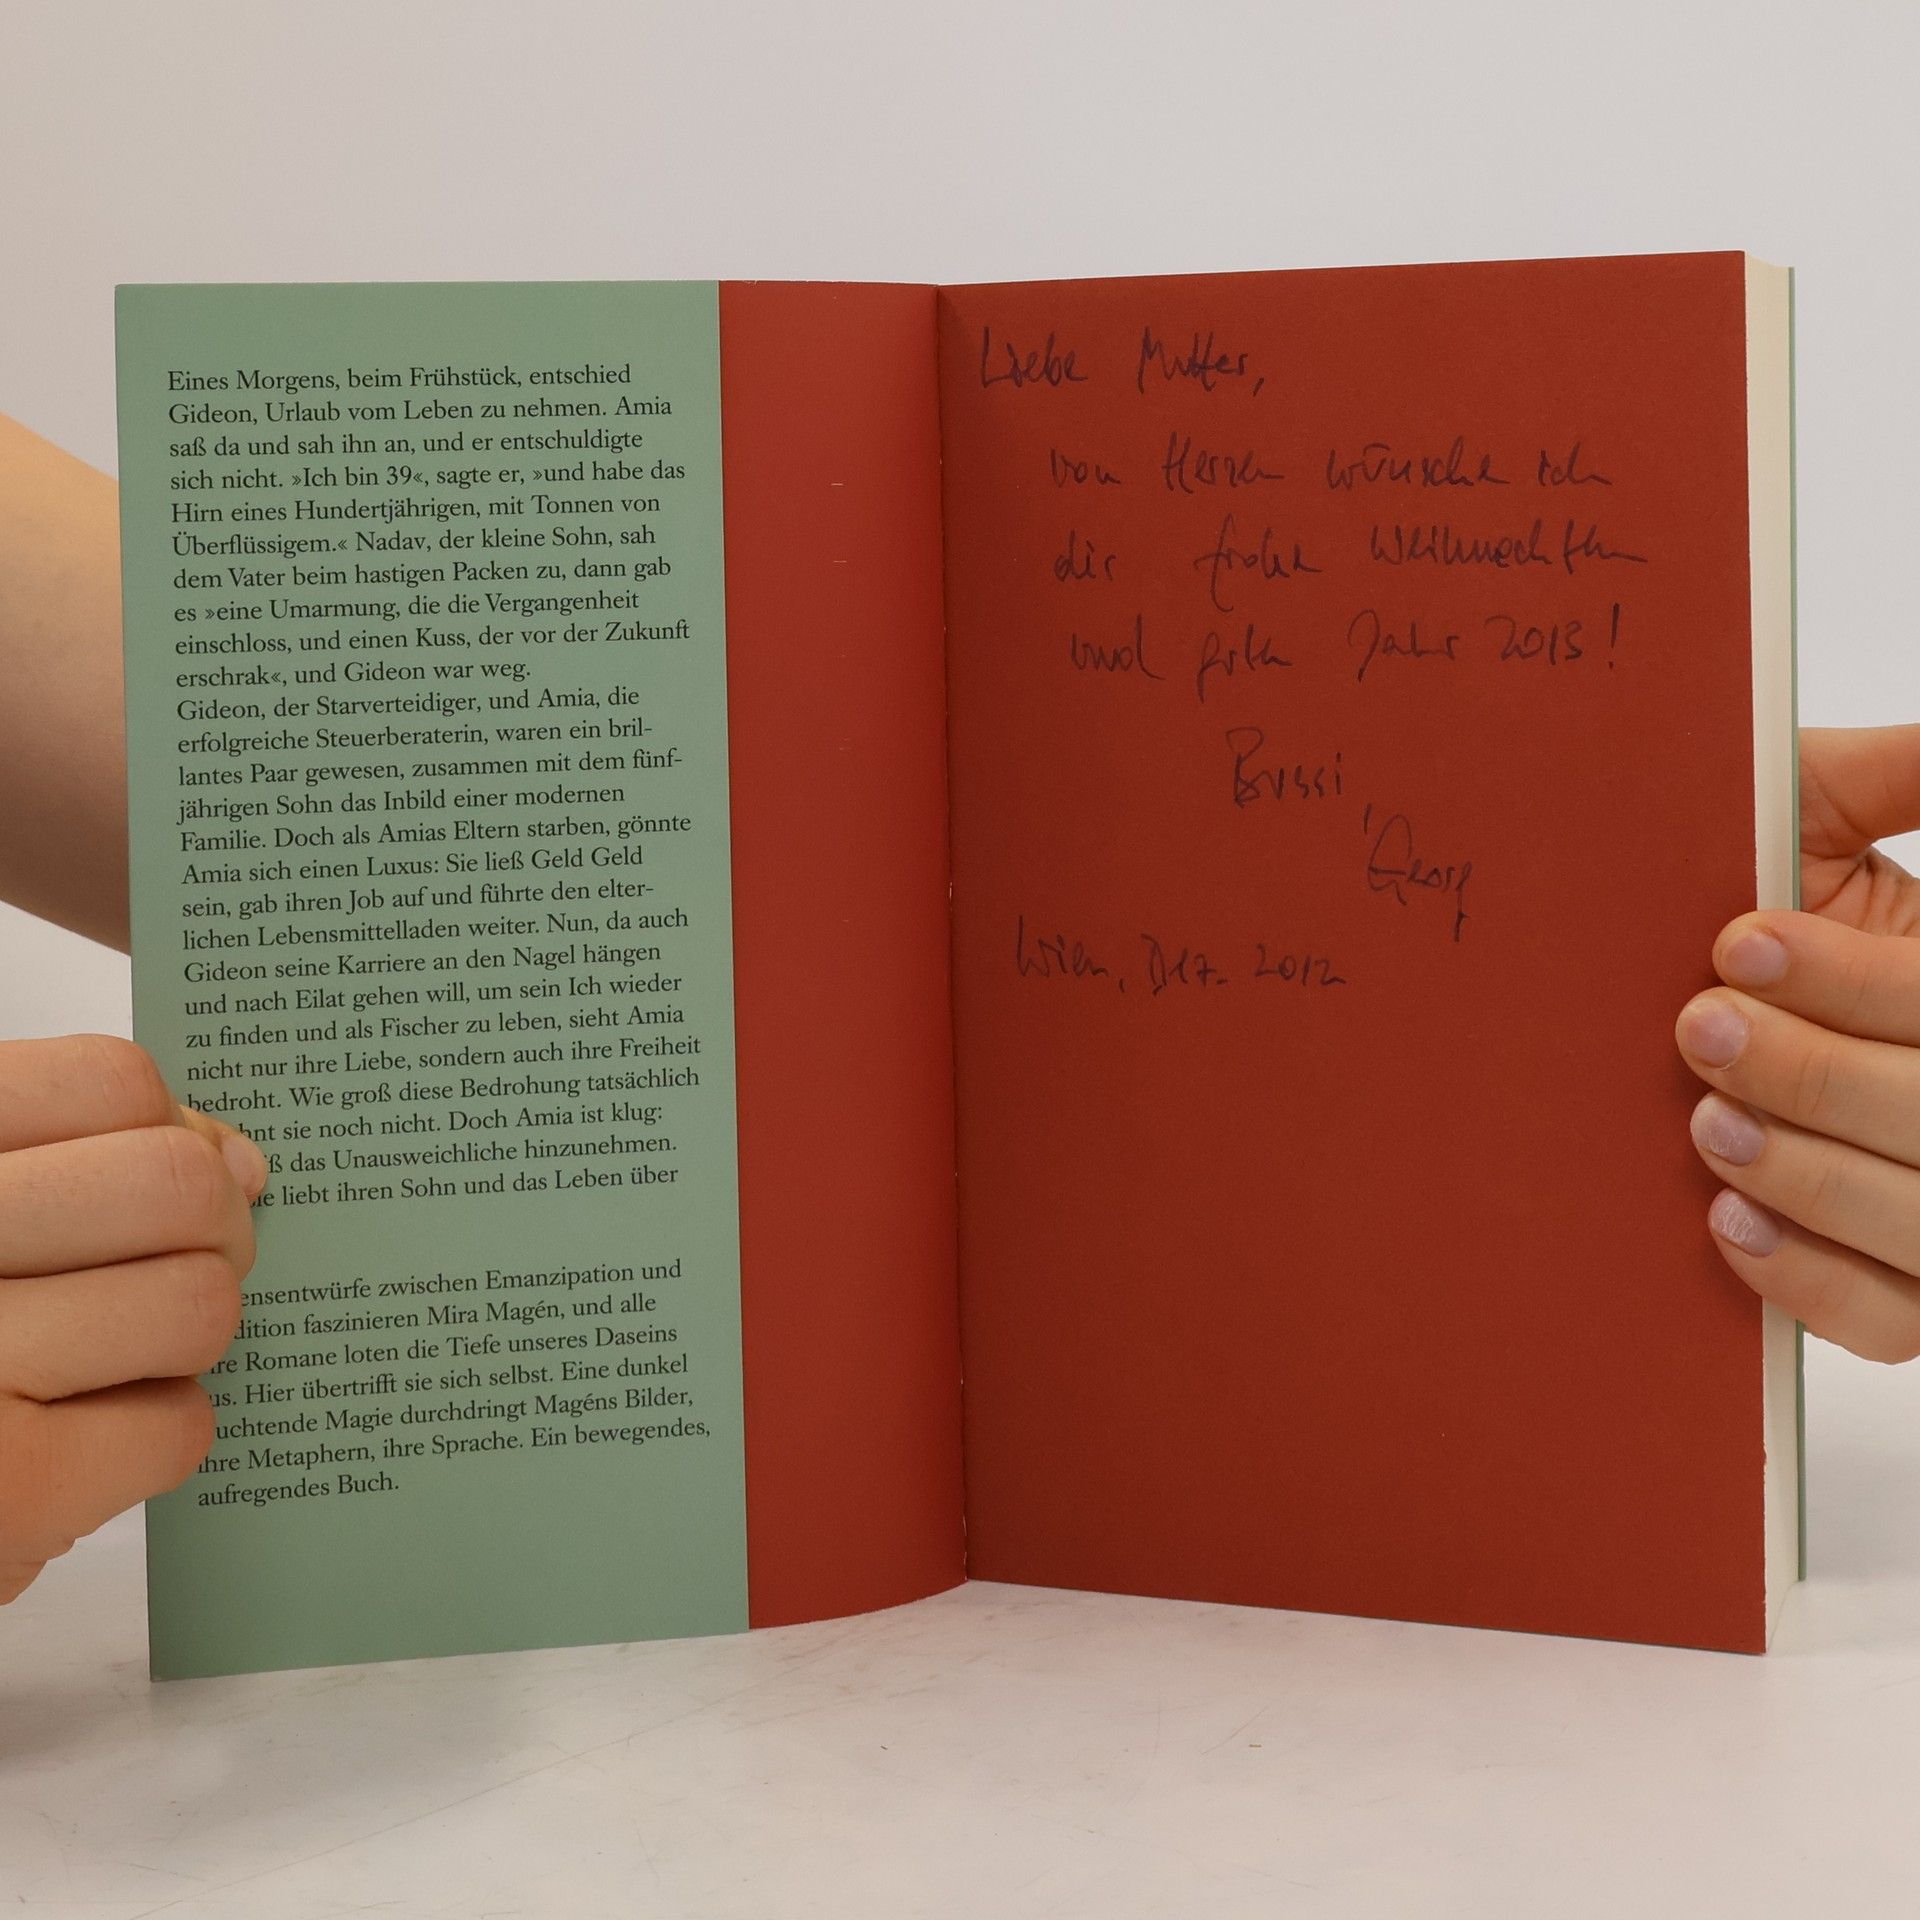 Eines Morgens, beim Frühstück, entschied
Gideon, Urlaub vom Leben zu nehmen. Amia
saß da und sah ihn an, und er entschuldigte
sich nicht. »Ich bin 39«, sagte er, »und habe das
Hirn eines Hundertjährigen, mit Tonnen von
Überflüssigem.« Nadav, der kleine Sohn, sah
dem Vater beim hastigen Packen zu, dann gab
es »eine Umarmung, die die Vergangenheit
einschloss, und einen Kuss, der vor der Zukunft
erschrak«, und Gideon war weg.
Gideon, der Starverteidiger, und Amia, die
erfolgreiche Steuerberaterin, waren ein bril-
lantes Paar gewesen, zusammen mit dem fünf-
jährigen Sohn das Inbild einer modernen
Familie. Doch als Amias Eltern starben, gönnte
Amia sich einen Luxus: Sie ließ Geld Geld
sein, gab ihren Job auf und führte den elter-
lichen Lebensmittelladen weiter. Nun, da auch
Gideon seine Karriere an den Nagel hängen
und nach Eilat gehen will, um sein Ich wieder
zu finden und als Fischer zu leben, sieht Amia
nicht nur ihre Liebe, sondern auch ihre Freiheit
bedroht. Wie groß diese Bedrohung tatsächlich
sie noch nicht. Doch Amia ist klug:
das Unausweichliche hinzunehmen.
liebt ihren Sohn und das Leben über
zwischen Emanzipation und
faszinieren Mira Magén, und alle
Romane loten die Tiefe unseres Daseins
Hier übertrifft sie sich selbst. Eine dunkel
Magie durchdringt Magéns Bilder,
ihre Metaphern, ihre Sprache. Ein bewegendes,
aufregendes Buch.
Liebe Mutter,
von Herzen wünsche ich
dir frohe Weihnachten
und gutes Jahr 2013!
Bussi,
Georg
Wien, Dez. 2012